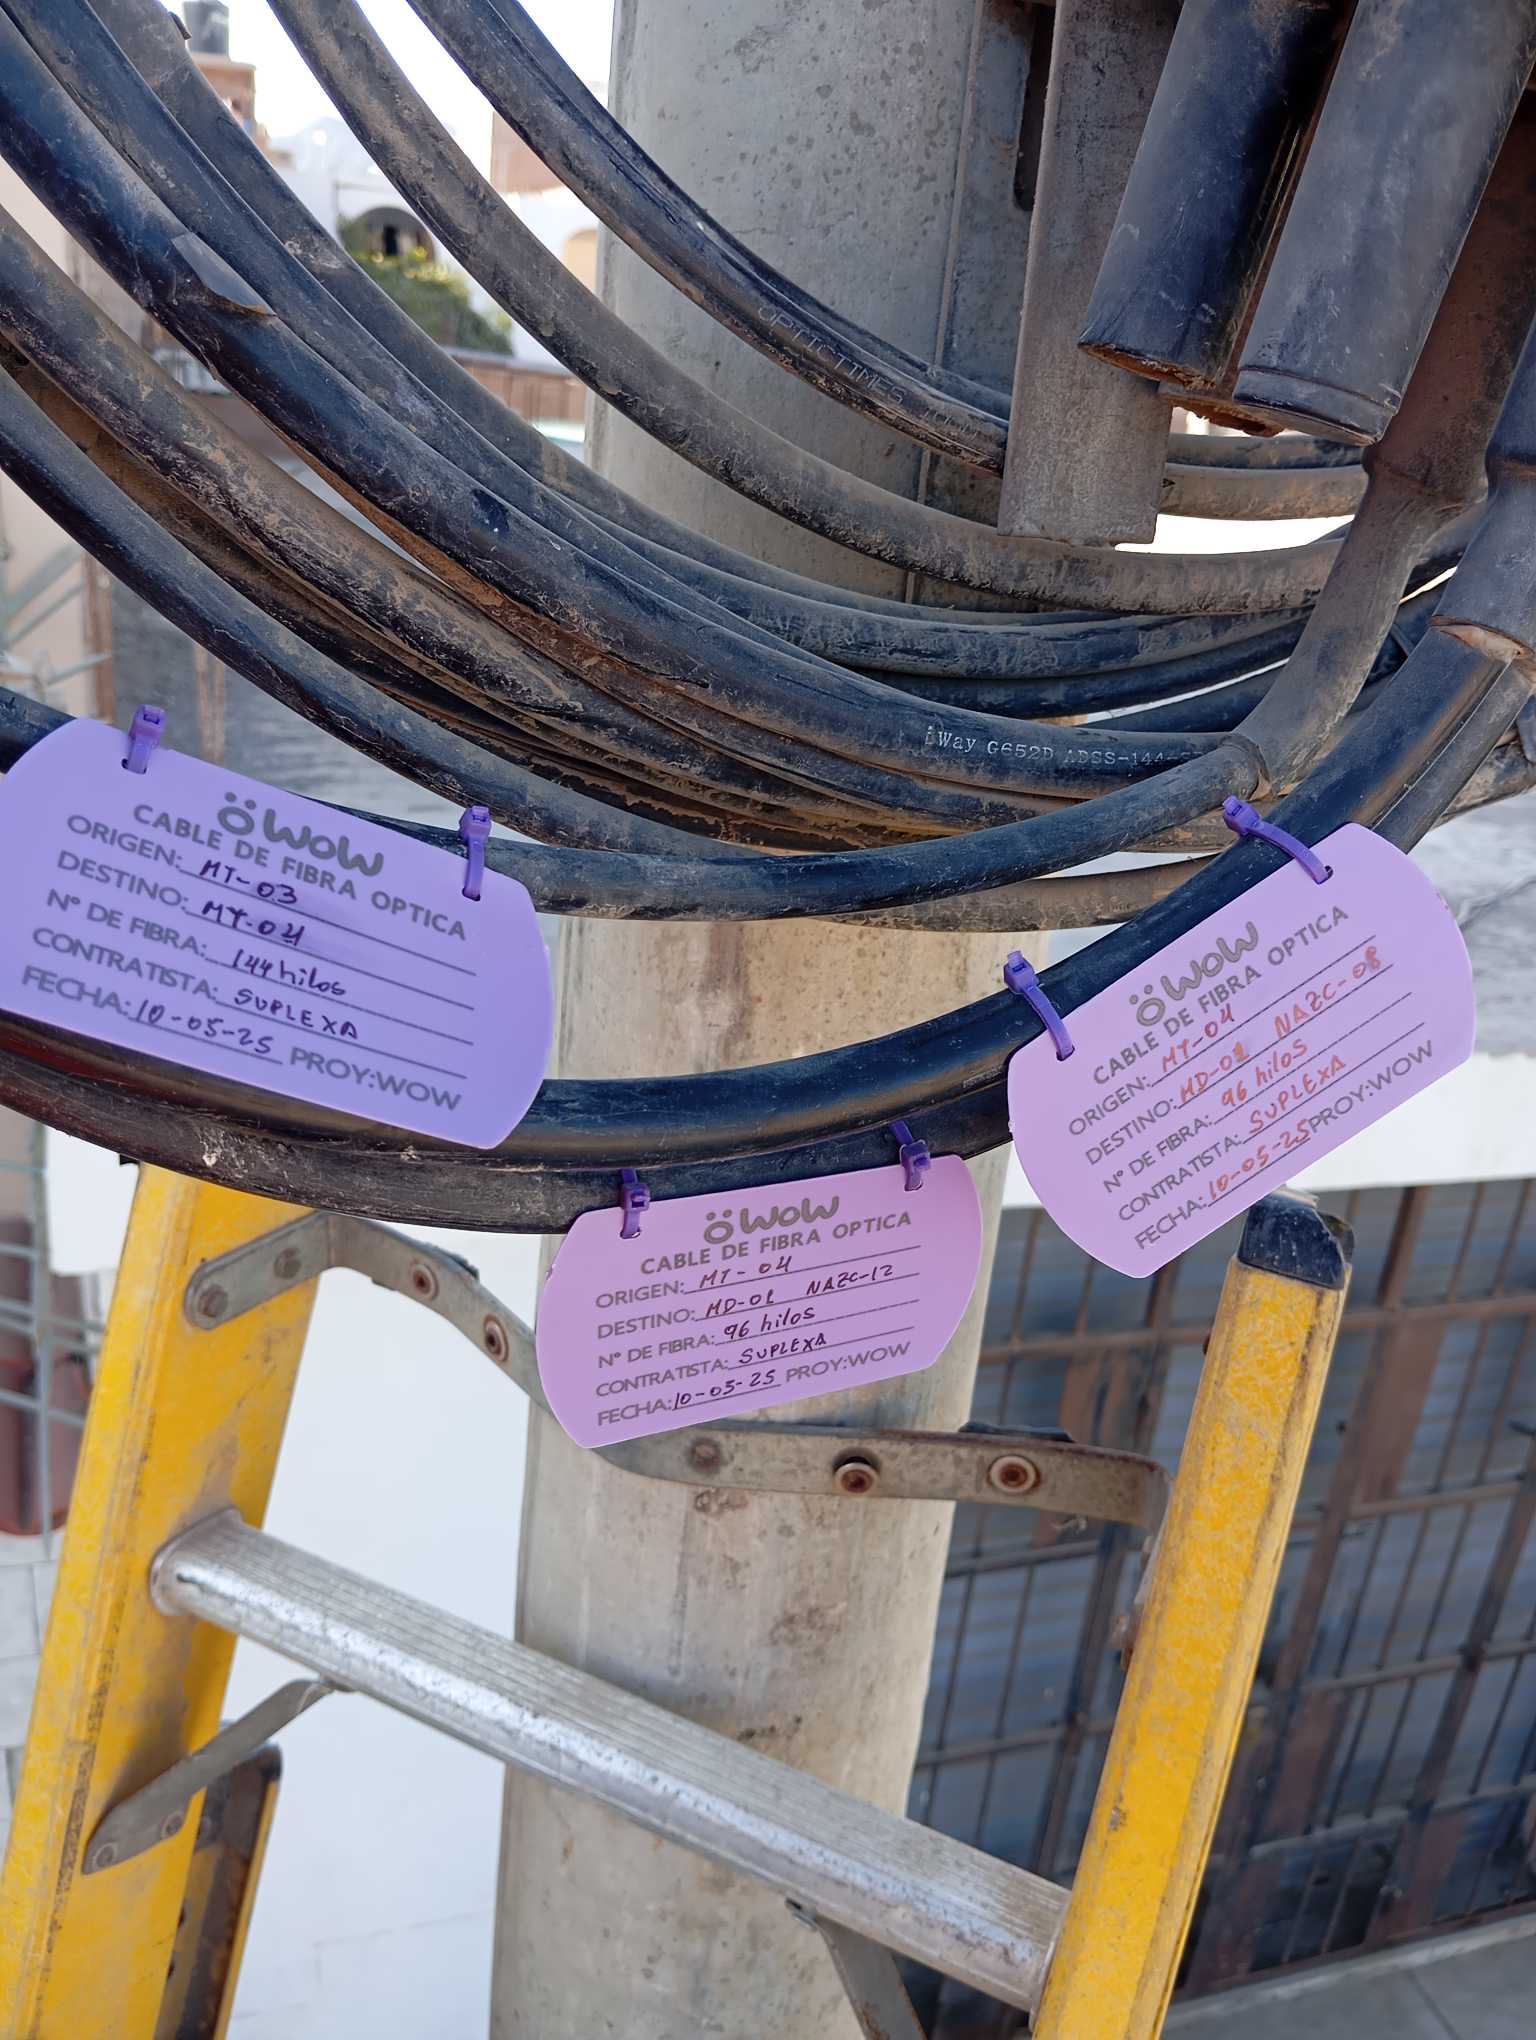 OPTICTIMES
iWay G652D ADSS-144
WOW
CABLE DE FIBRA OPTICA
ORIGEN: MT-03
DESTINO: MT-04
N° DE FIBRA: 144 hilos
CONTRATISTA: SUPLEXA
FECHA: 10-05-25 PROY:WOW
WOW
CABLE DE FIBRA OPTICA
ORIGEN: MT-04
DESTINO: MD-01 NAZC-12
N° DE FIBRA: 96 hilos
CONTRATISTA: SUPLEXA
FECHA: 10-05-25 PROY:WOW
WOW
CABLE DE FIBRA OPTICA
ORIGEN: MT-04
DESTINO: MD-01 NAZC-08
N° DE FIBRA: 96 hilos
CONTRATISTA: SUPLEXA
FECHA: 10-05-25 PROY:WOW